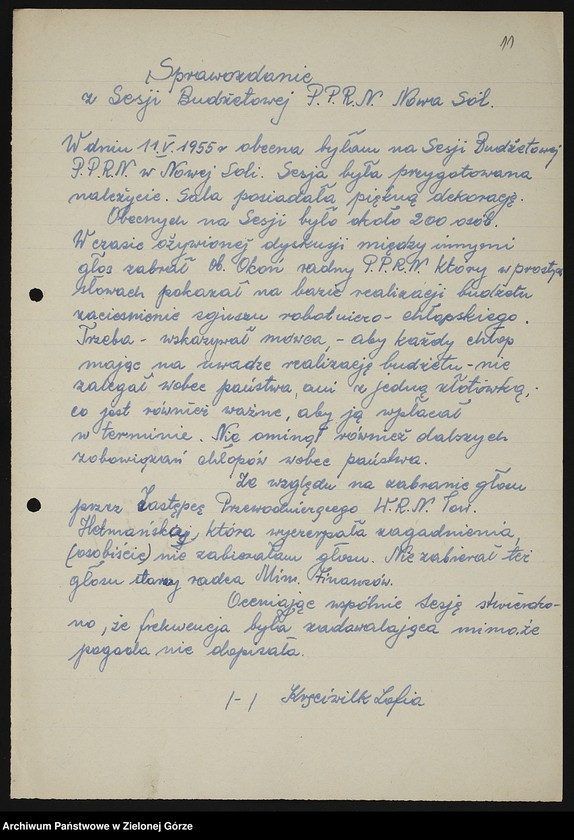 11
Sprawozdanie
z Sesji Budżetowej P.P.R.N. Nowa Sól.
W dniu 11.V.1955 r obecna byłam na Sesji Budżetowej
P.P.R.N. w Nowej Soli. Sesja była przygotowana
należycie. Sala posiadała piękną dekorację.
Obecnych na Sesji było około 200 osób.
W czasie ożywionej dyskusji między innymi
głos zabrał Ob. Okoń radny P.P.R.N. który w prostych
słowach pokazał na bazie realizacji budżetu
zacieśnienie sojuszu robotniczo-chłopskiego.
Trzeba - wskazywał mówca, - aby każdy chłop
mając na uwadze realizację budżetu - nie
zalegał wobec państwa, ani z jedną złotówką,
co jest również ważne, aby ją wpłacał
w terminie. Nie ominął również dalszych
zobowiązań chłopów wobec państwa.
Ze względu na zabranie głosu
przez Zastępcę Przewodniczącego W.R.N. Tow.
Hetmańskiej, która wyczerpała zagadnienia,
(osobiście) nie zabierałam głosu. Nie zabierał też
głosu starszy radca Min. Finansów.
Oceniając wspólnie sesję stwierdzo-
no, że frekwencja była zadawalająca mimo że
pogoda nie dopisała.
/-/ Kręciwilk Zofia
Archiwum Państwowe w Zielonej Górze